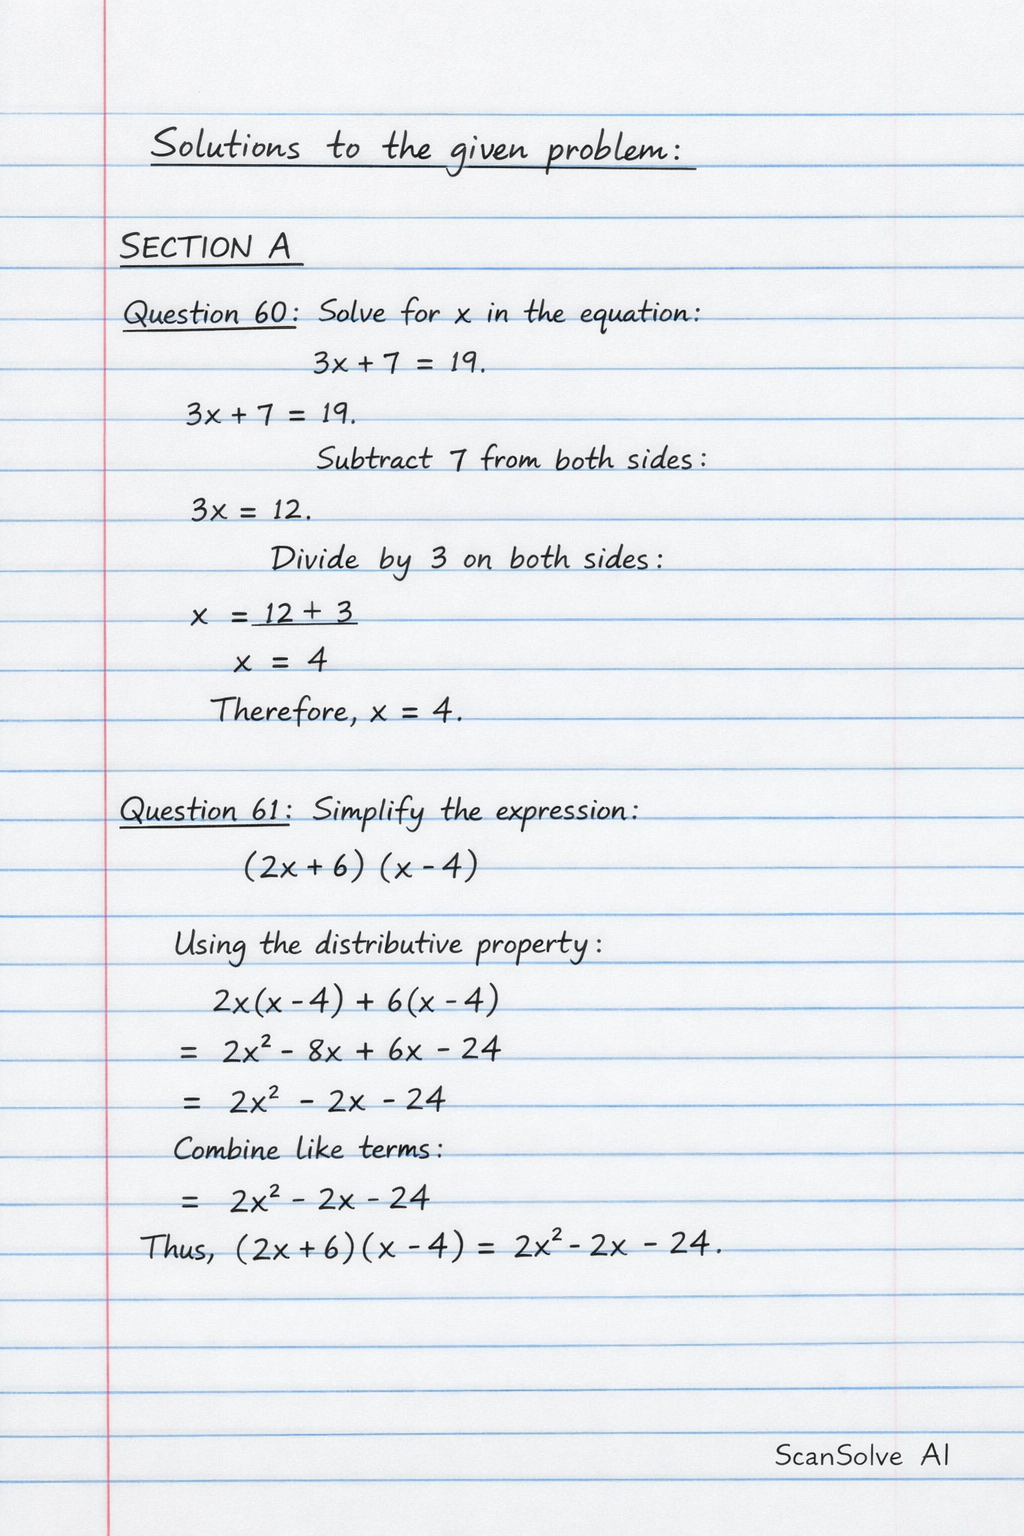 Solutions to the given problem:
SECTION A
Question 60: Solve for x in the equation:
3x + 7 = 19.
3x + 7 = 19.
Subtract 7 from both sides:
3x = 12.
Divide by 3 on both sides:
x = 12 + 3
x = 4
Therefore, x = 4.
Question 61: Simplify the expression:
(2x + 6) (x - 4)
Using the distributive property:
2x(x - 4) + 6(x - 4)
= 2x² - 8x + 6x - 24
= 2x² - 2x - 24
Combine like terms:
= 2x² - 2x - 24
Thus, (2x + 6)(x - 4) = 2x² - 2x - 24.
ScanSolve AI